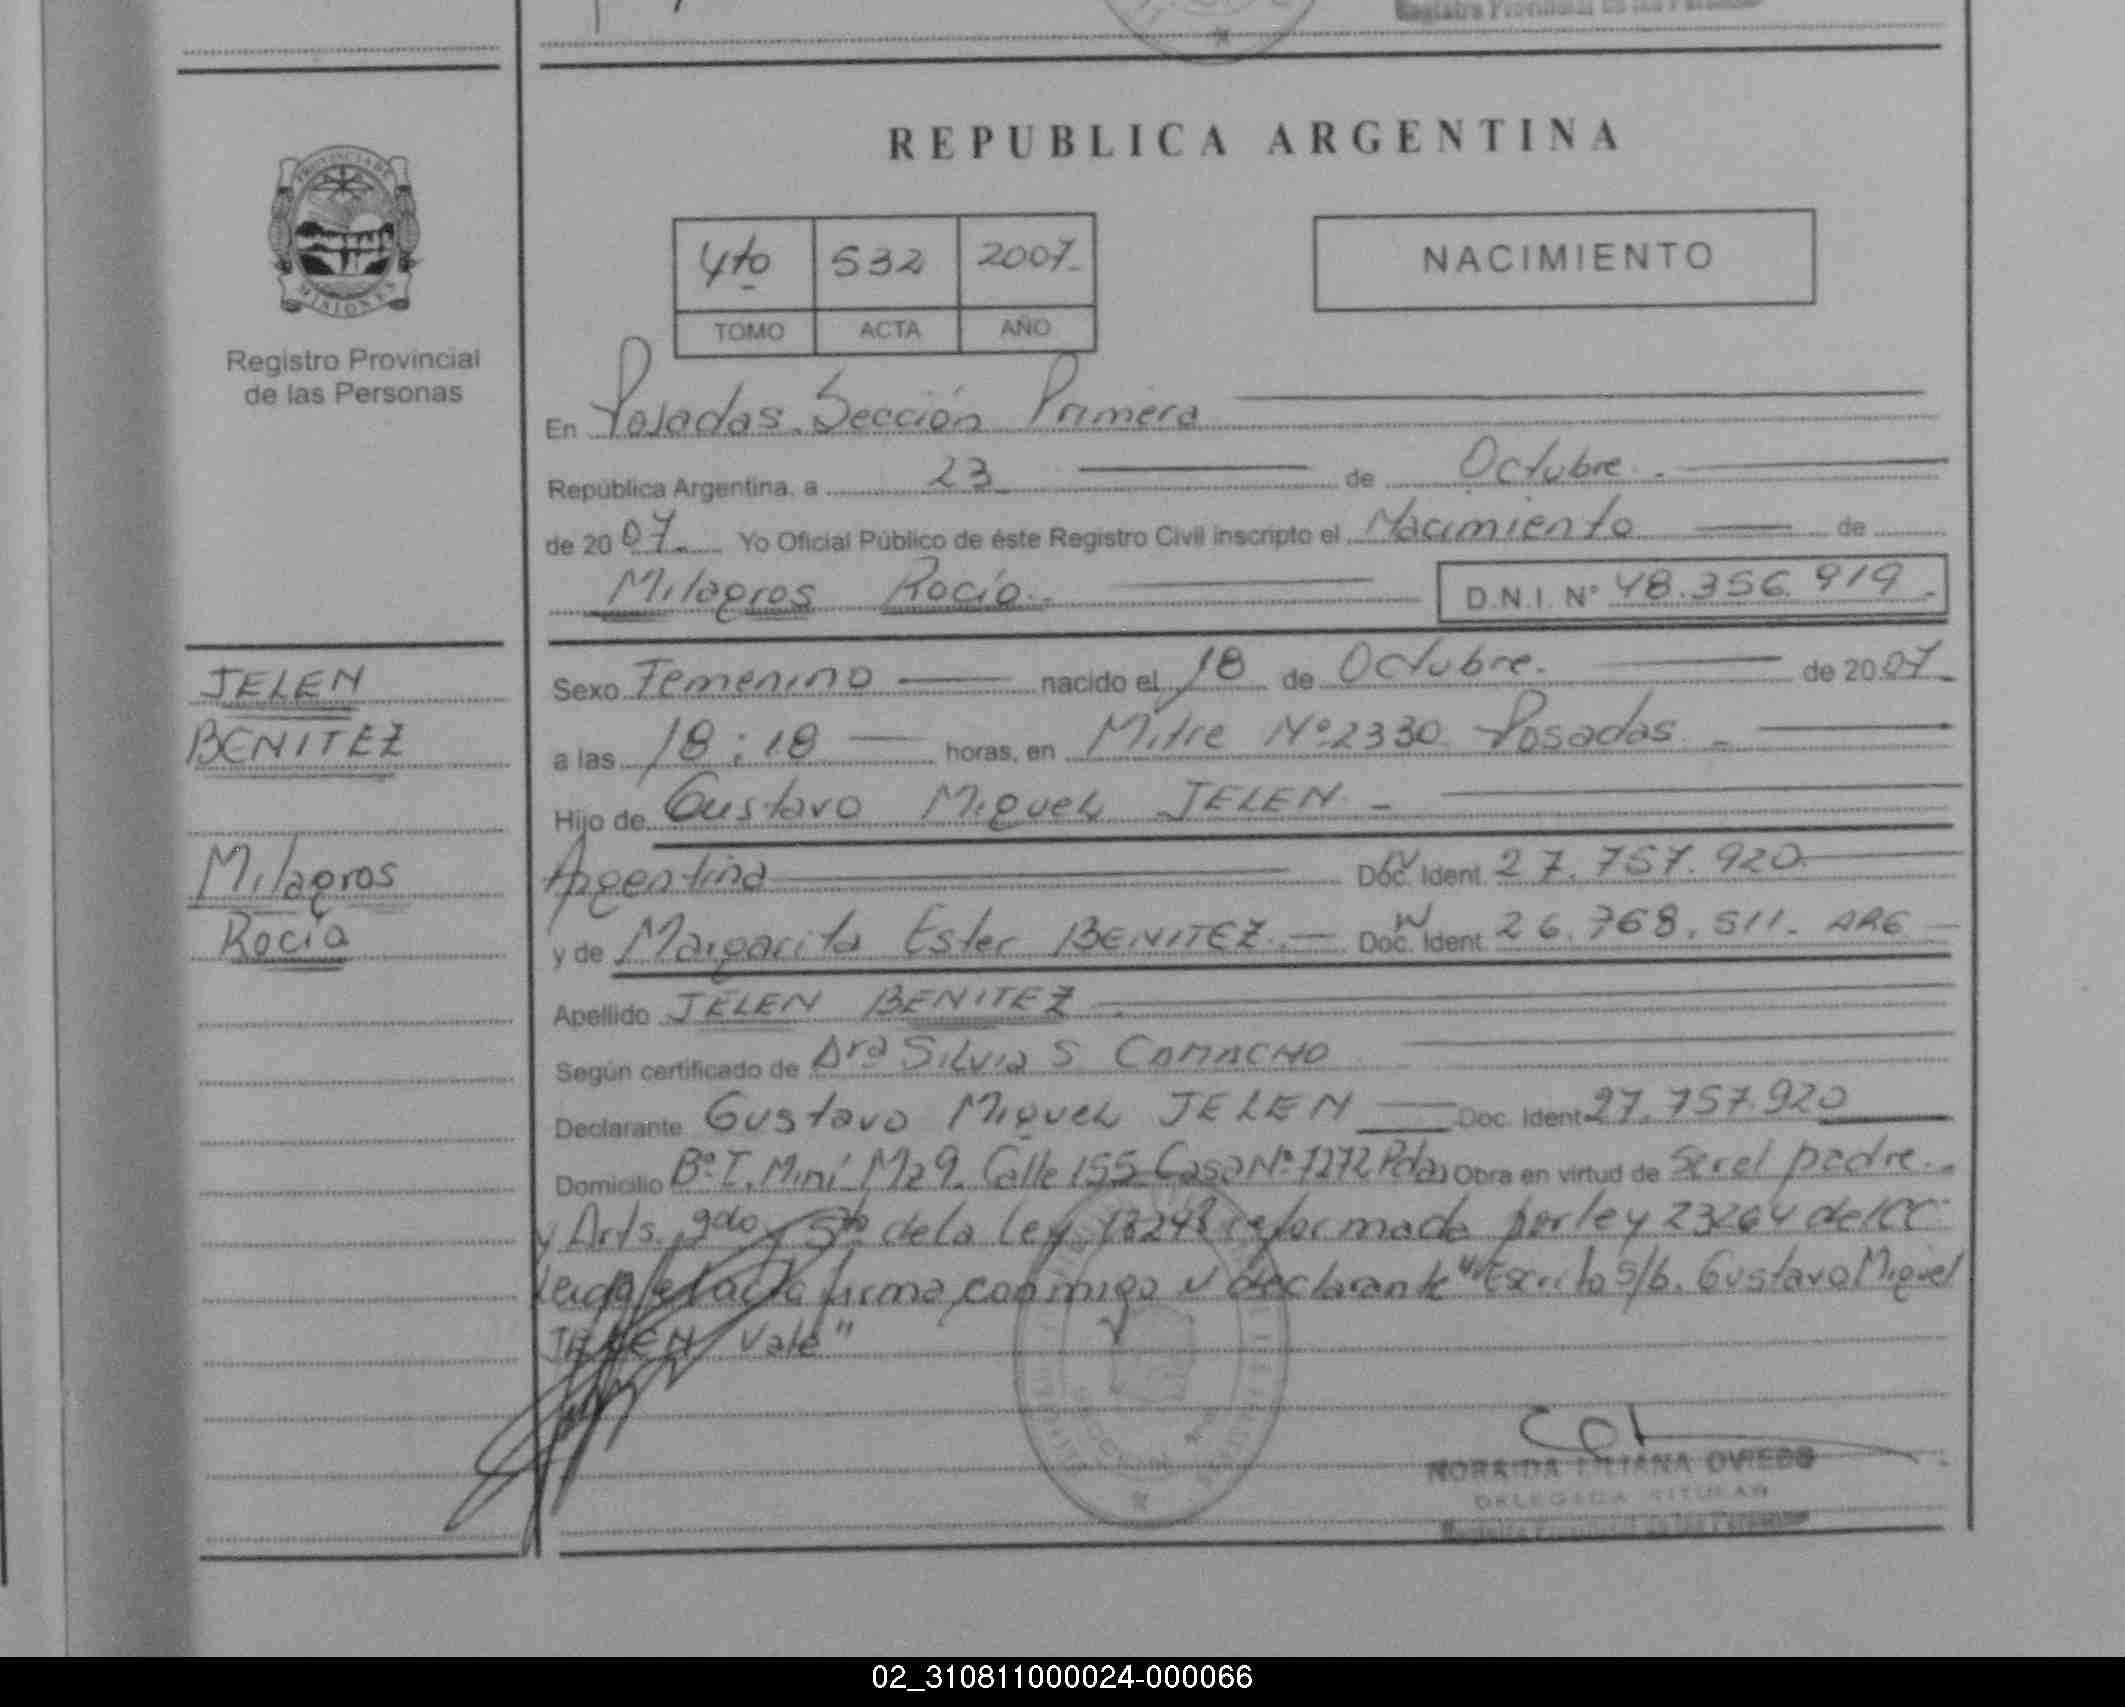 REPUBLICA ARGENTINA
PROVINCIA DE
MISIONES
Registro Provincial
de las Personas
4to 532 2007
TOMO ACTA AÑO
NACIMIENTO
En Posadas Sección Primera
República Argentina, a 23 de Octubre
de 2007 Yo Oficial Público de éste Registro Civil inscripto el Nacimiento de
Milagros Rocío D.N.I. N° 48.356.919
JELEN
BENITEZ
Milagros
Rocío
Sexo Femenino nacido el 18 de Octubre de 2007
a las 18:18 horas, en Mitre N° 2330 Posadas
Hijo de Gustavo Miguel JELEN
Argentina Doc. Ident. 27.757.920
y de Margarita Ester BENITEZ Doc. Ident. 26.768.511. ARG
Apellido JELEN BENITEZ
Según certificado de Dra Silvia S CAMACHO
Declarante Gustavo Miguel JELEN Doc. Ident 27.757.920
Domicilio B° I. Miní Mz 9 Calle 155 Casa N° 7272 Pdas Obra en virtud de ser el padre
y Arts. y 5to de la ley 18248 reformada por ley 23264 del CC
Leida el acta firma conmigo declarante "Escrito s/b. Gustavo Miguel
JELEN Vale"
NORAIDA LILIANA OVIEDO
DELEGADA TITULAR
Registro Provincial de las Personas
02_310811000024-000066